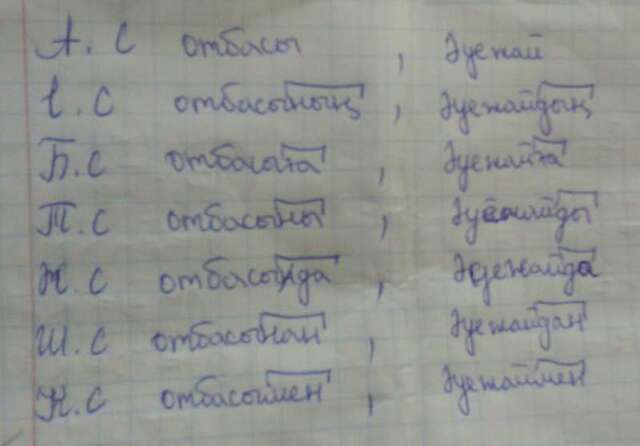 А. С отбасы, әуежай
І. С отбасының, әуежайдың
Б. С отбасыға, әуежайға
Т. С отбасыны, әуежайды
Ж. С отбасында, әуежайда
Ш. С отбасынан, әуежайдан
К. С отбасымен, әуежаймен